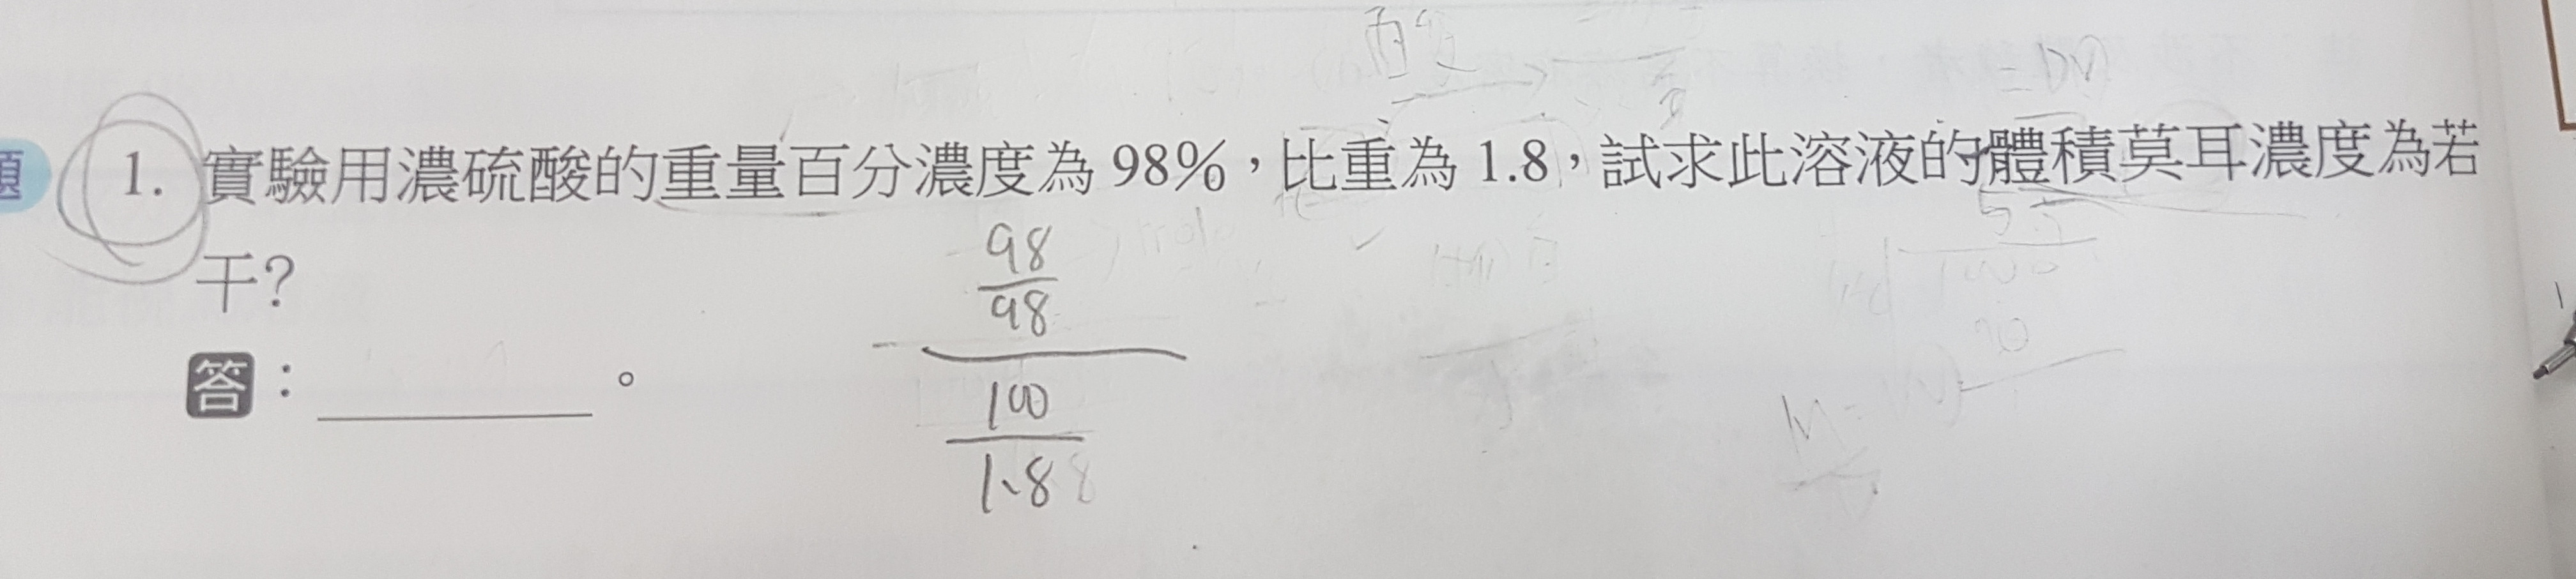 題 1. 實驗用濃硫酸的重量百分濃度為 98%，比重為 1.8，試求此溶液的體積莫耳濃度為若
干？
答：________。
98
98
100
1.8